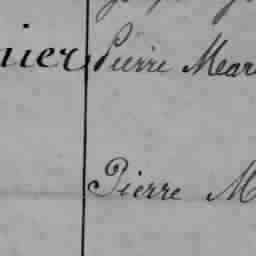 nier Pierre Mar
Pierre M